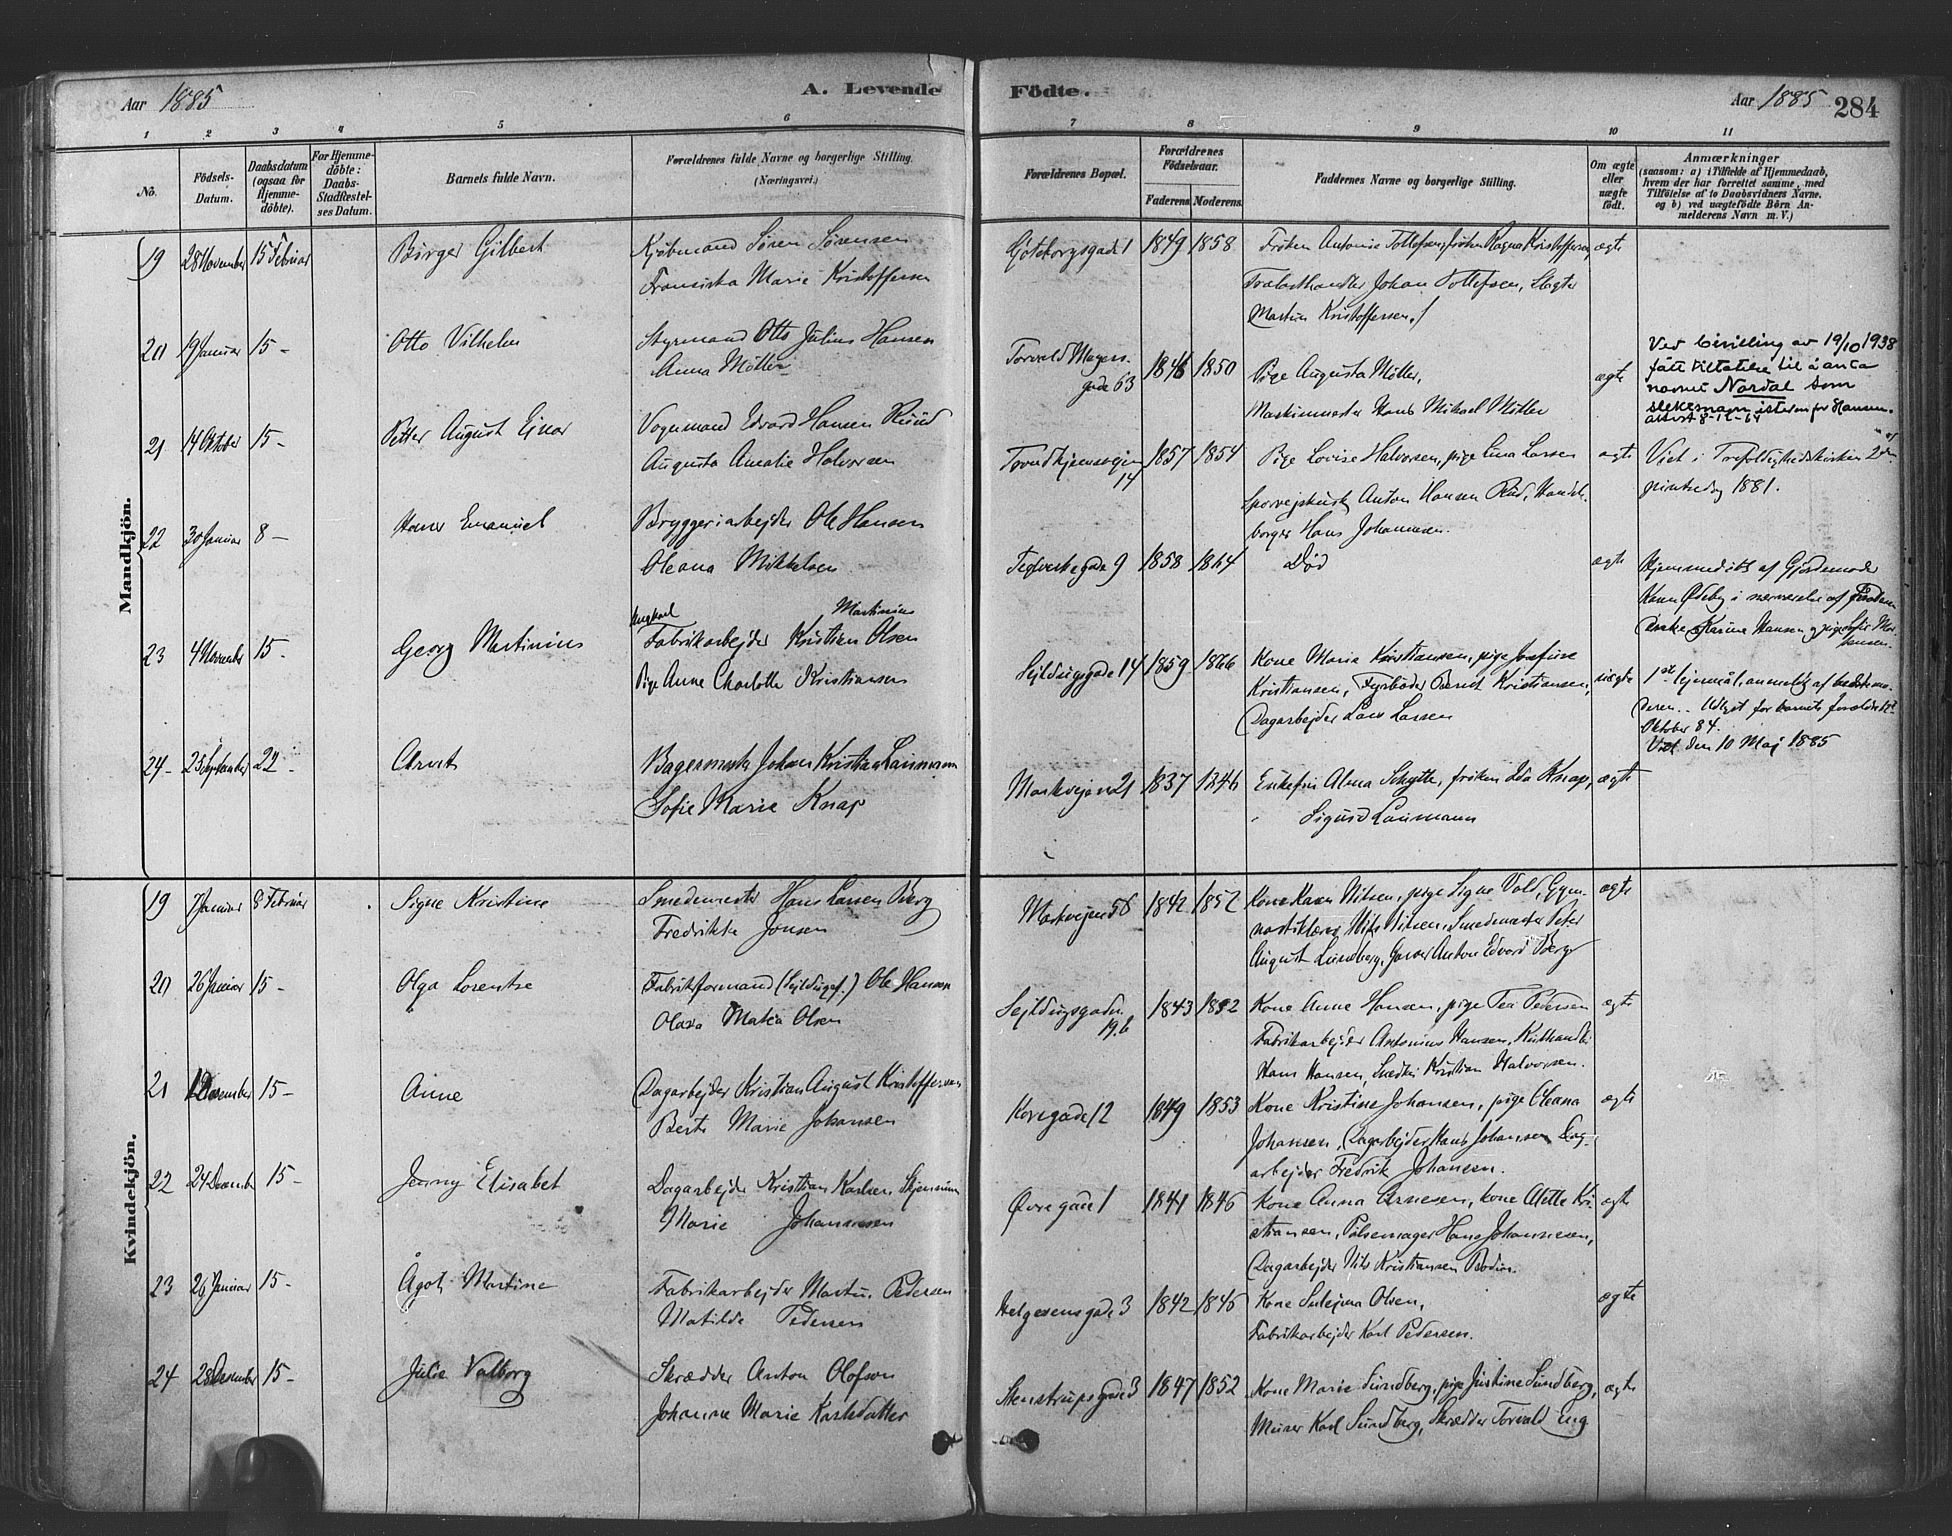 Aar 1885
A. Levende
Födte.
Aar 1885
284
1 2 3 4 5 6 7 8 9 10 11
No.
Födsels-
Datum.
Daabsdatum
(ogsaa for
Hjemme-
döbte).
For Hjemme-
döbte:
Daabs-
StadRestel-
ses Datum.
Barnets fulde Navn.
Forældrenes fulde Navne og borgerlige Stilling.
(Næringsvei.)
Forældrenes Bopæl.
Forældrenes
Födselsaar.
Faderens Moderens
Faddernes Navne og borgerlige Stilling.
Om ægte
eller
uægte
födt.
Anmærkninger
(saasom: a) i Tilfælde af Hjemmedaab,
hvem der har forrettet samme, med
Tilföielse af to Daabsvidners Navne.
og b) ved uægtefödte Börn An-
melderens Navn m. V.)
Mandkjön.
19 28 November 15 Februar Birger Gilbert Kjöbmand Sören Sörensen
Fransiska Marie Kristoffersen
Göteborgsgade 1 1849 1858 Fröken Antonie Tollefsen, fröken Ragna Kristoffersen, ægte
Trælasthandler Johan Tollefsen, Slagter
Martin Kristoffersen
20 19 Januar 15 - Otto Vilhelm Styrmand Otto Julius Hansen
Anna Möller
Torvald Meyers
gade 63 1846 1850 Pige Augusta Möller, ægte
Maskinmester Hans Mikael Möller
Ved bevilling av 19/10 1938
fått tillatelse til å anta
navnet Nordal som
slektsnavn istedenfor Hansen.
attest 8-12-64
21 14 Oktober 15 - Petter August Einar Vognmand Edvard Hansen Ruud
Augusta Amalie Halvorsen
Trondhjemsvejen
14 1857 1854 Pige Lovise Halvorsen, pige Lina Larsen ægte
Sporvejskusk Anton Hansen Rud, Handels-
borger Hans Johannesen.
Viet i Trefoldighedskirken 2den
pintsedag 1881.
22 30 Januar 8 - Hans Emanuel Bryggeriarbejder Ole Hansen
Oleana Mikkelsen
Teglverksgade 9 1858 1864 Död ægte
Hjemmedöbt af Gjordemoder
Karen Ödeby i nærværelse af
enke Karine Hansen og pige Sofie
23 4 November 15 - Georg Martinius Ungkarl Martinius
Fabrikarbejder Kristian Olsen
Pige Anne Charlotte Kristiansen
Sejldugsgade 14 1859 1866 Kone Marie Kristiansen, pige Josefine
Kristiansen, Fyrböder Bernt Kristiansen,
Dagarbejder Lars Larsen
uægte
1ste lejermål, anmeldt af bedstemo-
deren. Udlagt for barnets forældre
Oktober 84.
Viet den 10 Maj 1885
24 - 25 September 22 - Arvet Bagermester Johan Kristian Laumann
Sofie Marie Knap
Markvejen 21 1837 1846 Enkefru Alma Schytte, fröken Ida Knap, ægte
Sigurd Laumann
Kvindekjön.
19 7 Januar 8 Februar Signe Kristine Smedemester Hans Larsen Berg
Fredrikke Jonsen
Markvejen 58 1842 1852 Kone Karen Nilsen, pige Signe Vold, Gym- ægte
nastiklærer Nils Nilsen, Smedemester Peter
August Lundberg, Anton Edvard Berg
20 26 Januar 15 - Olga Lorentse Fabrikformand (Sejldugsf.) Ole Hansen
Olava Matea Olsen
Sejldugsgaden
19.b 1843 1852 Kone Anne Hansen, pige Tea Pedersen ægte
Fabrikarbejder Antonius Hansen,
Hans Hansen, Snedker Kristian Halvorsen.
21 December 15 - Anne Dagarbejder Kristian August Kristoffersen
Berte Marie Johansen
Korsgade 12 1849 1853 Kone Kristine Johansen, pige Oleana ægte
Johansen, Dagarbejder Hans Johansen Dag-
arbejder Fredrik Johansen.
22 24 December 15 - Jenny Elisabet Dagarbejder Kristian Karlsen
Marie Johannesen
Övregade 1 1841 1846 Kone Anna Arnesen, kone Alette Kri- ægte
stiansen, Pölsemager Hans Johannesen,
Dagarbejder Nils Kristiansen Bodin.
23 26 Januar 15 - Ågot Martine Fabrikarbejder Martin Pedersen
Matilde Pedersen
Helgesensgade 3 1842 1845 Kone Olsen, ægte
Fabrikarbejder Karl Pedersen.
24 28 Desember 15 - Julie Valborg Skrædder Anton Olofson
Johanne Marie Karlsdatter
Stenstrupsgade 3 1847 1852 Kone Marie Sundberg, pige Justine Sundberg, ægte
Murer Karl Sundberg, Skrædder Torvald Eng